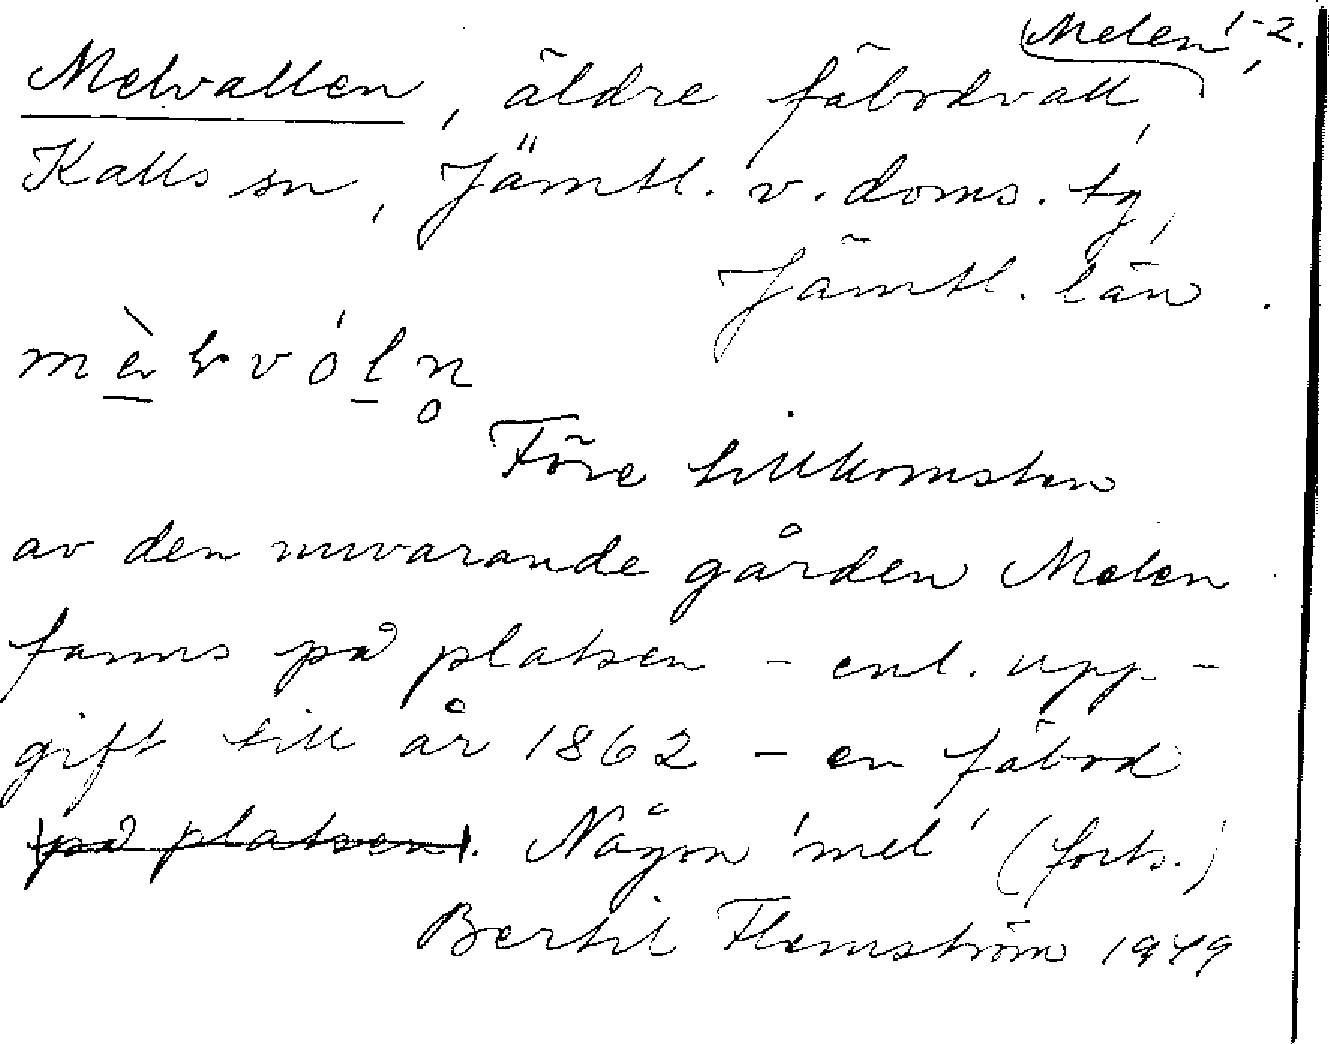 Melen 1-2.
Melvallen, äldre fäbodvall,
Kalls sn, Jämtl. v. doms. tg,
Jämtl. län.
Före tillkomsten
av den nuvarande gården Melen
fanns på platsen - enl. upp-
gift till år 1862 - en fäbod
på platsen. Någon 'mel' (forts.)
Bertil Flemström 1949